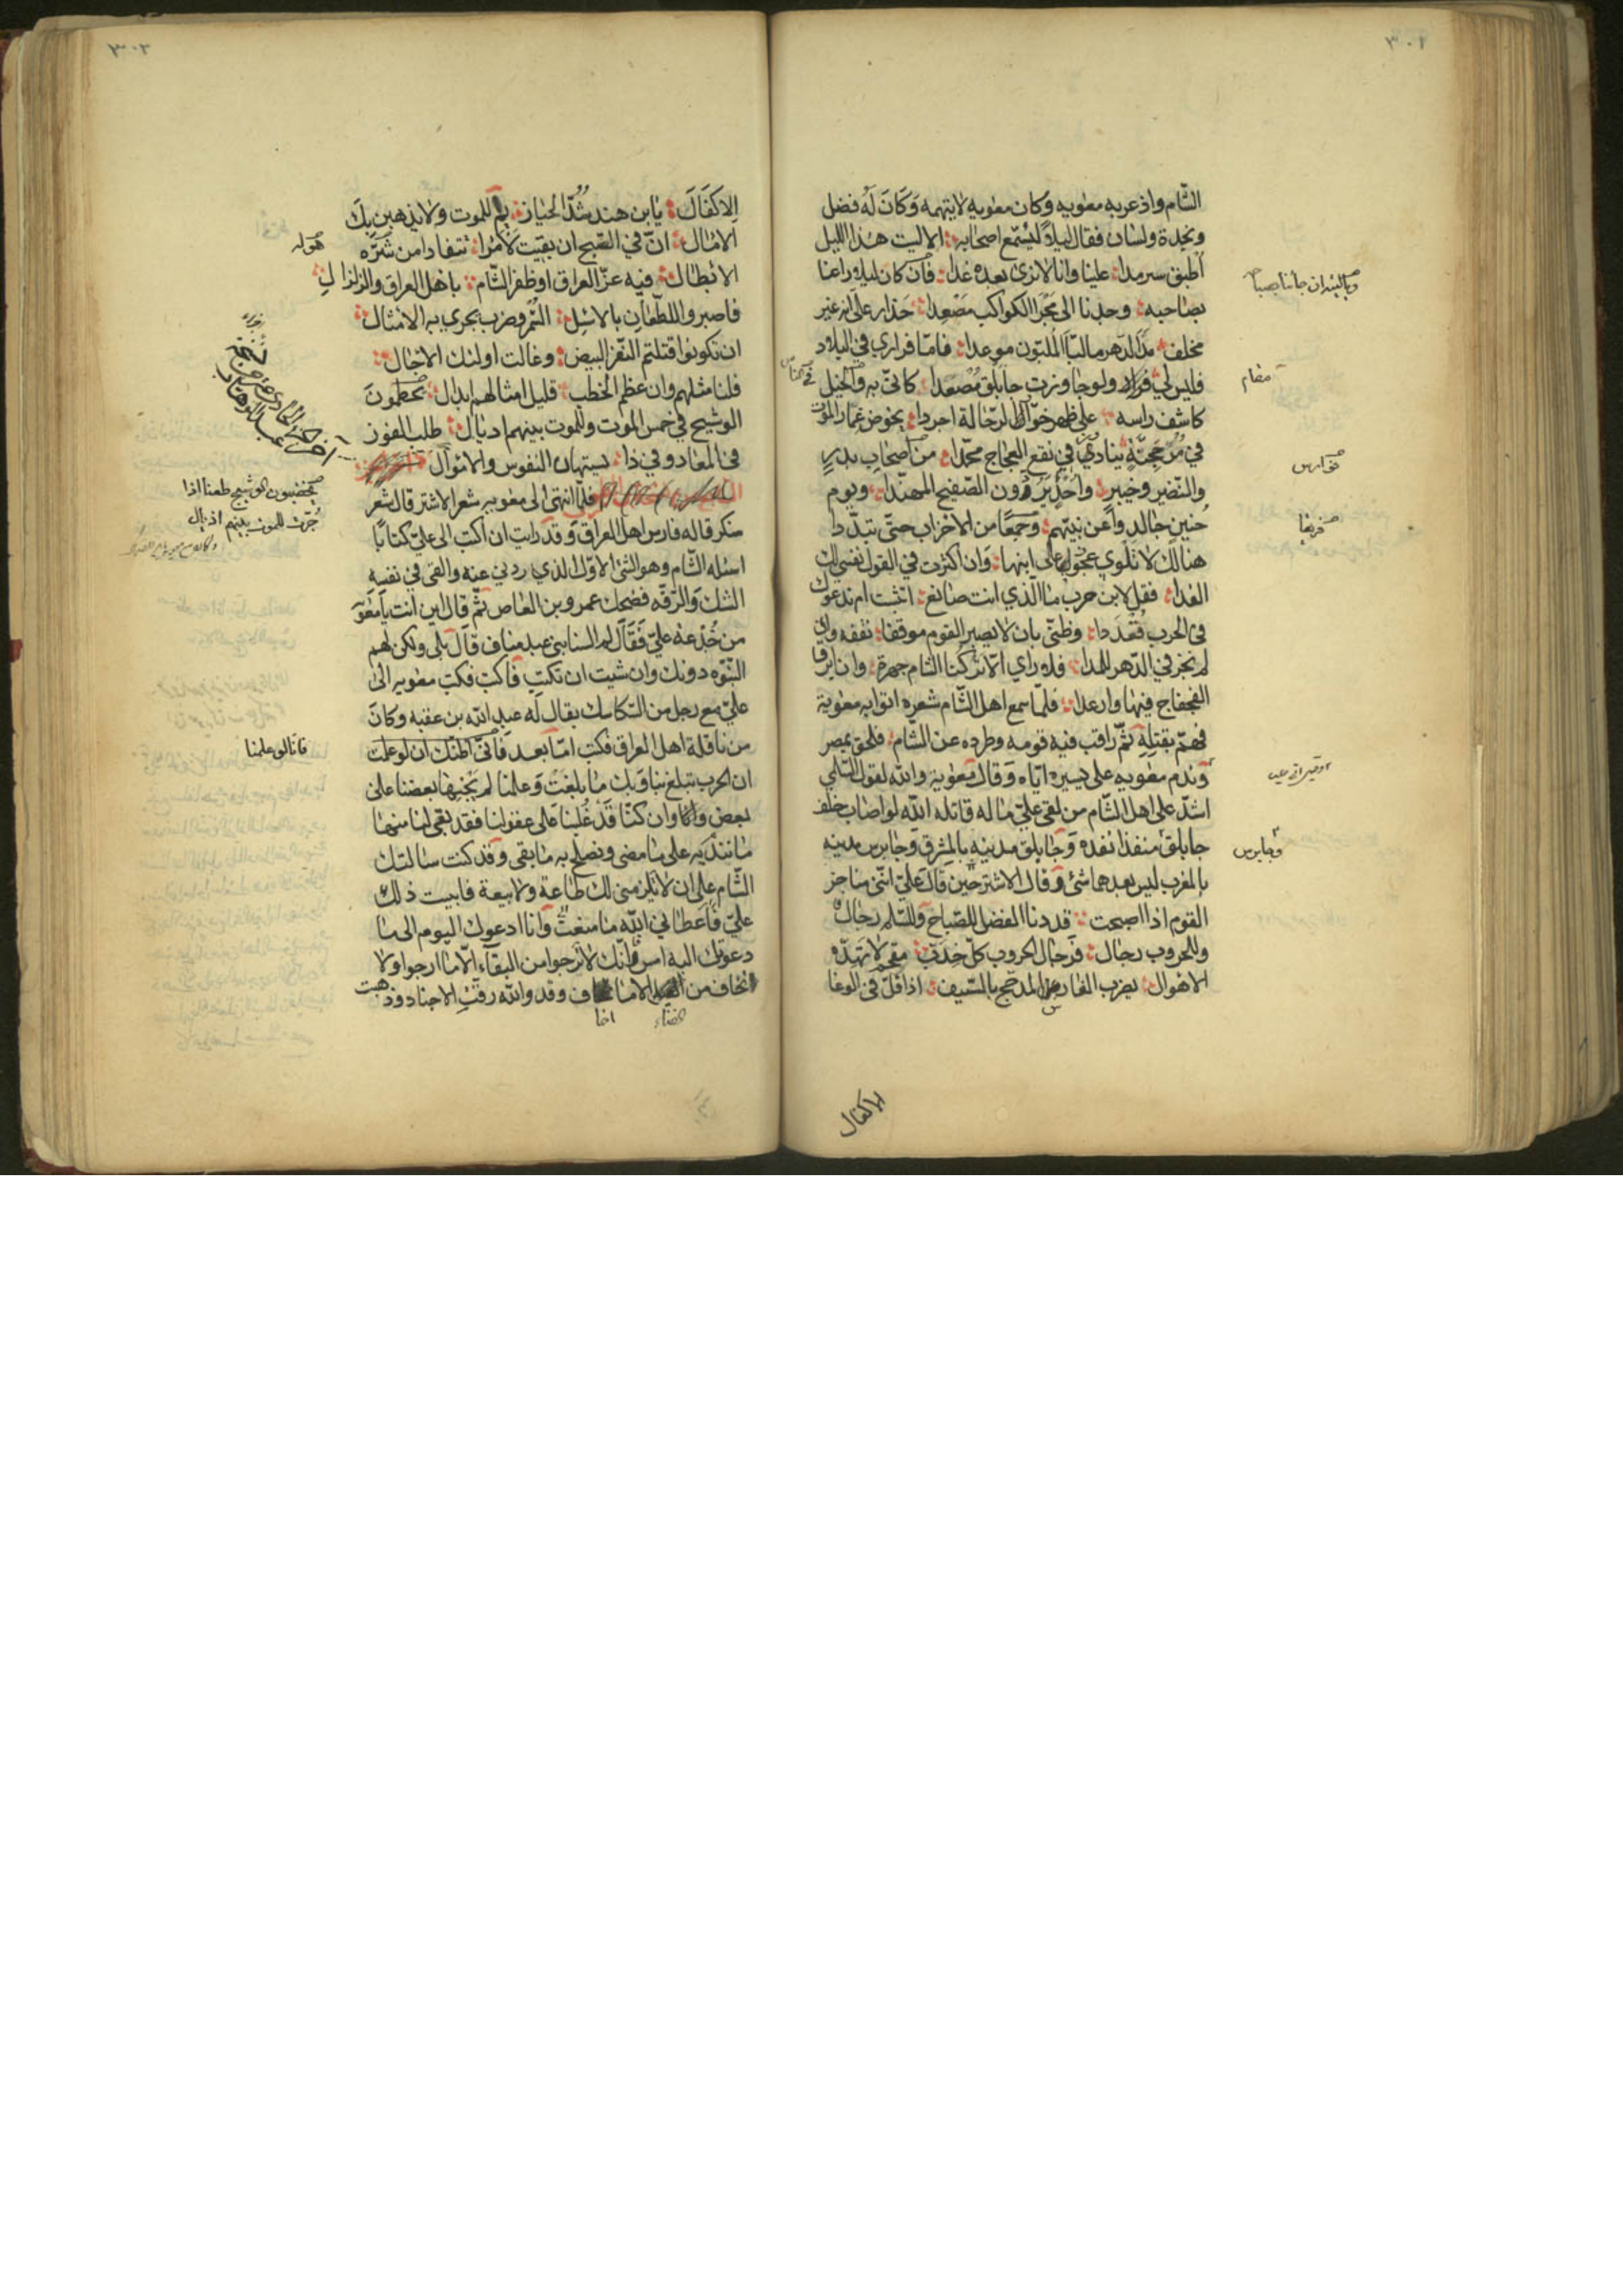 ٣٠١
الشّام واذعر به معويه وكان معويه لا يتهمه وكان له فضل
ونجدة ولسان فقال ليلاً ليستمع اصحابه الا ليت هذا الليل
اطبق سرمدا علينا وانا لا نرى بعده غدا فان كان ليلا راعنا
بصاحبه وجدنا الى مجرا الكواكب مصعدا حذار على انه غير
مخلف مدا الدهر ما لبّا الملبّون موعدا فامّا فراري في البلاد
فليس لي فرار ولو جاوزت جابلق مصعدا كانّي به والخيل
كاشف راسه على ظهر خوّاظ الرّحالة اجردا يخوض غمار الموت
في مرجحنّة ينادي في نقع العجاج محمّدا من اصحاب بدر
والنّضير وخيبر واحد يرون الصّفيح المهنّدا ويوم
حنين جالدوا عن نبيّهم وجمعا من الاحزاب حتى تبدّدا
هنالك لا تلوي عجوز على ابنها وان اكثرت في القول نفسي لك
الفدا فقل لابن حرب ما الّذي انت صانع اتثبت ام ندعوك
في الحرب قعددا وظنّي بان لا يصبر القوم موقفا نقفه وان
لم نجز في الدّهر للمدا فلا راي الّا تركنا الشام جهرة وان ابرق
الفجفاج فيها وارعدا فلمّا سمع اهل الشّام شعره اتوا به معوية
فهمّ بقتله ثمّ راقب فيه قومه وطرده عن الشام فلحق بمصر
وندم معويه على تسيره ايّاه وقال معوية والله لقول السّلمي
اشدّ على اهل الشّام من لقى عليّ ما له قاتله الله لو اصاب خلف
جابلق منفذا نفده وجابلق مدينه بالمشرق وجابرس مدينه
بالمغرب ليس بعدهما شئ وقال الاشتر حين قال عليّ انّني مناجز
القوم اذا اصبحت قد دنا الفضل للصّباح وللسّلم رجال
وللحروب رجال فرجال الحروب كلّ خدبّ مقحم لا تهدّه
الاهوال يضرب الفارس المدجّج بالسّيف اذا فلّ في الوغا
الاكفال
مقام
وجابرس
٣٠٢
الاكفال يا ابن هند شدّ الحيازيم للموت ولا يذهبن بك
الامال انّ في الصّبح ان بقيت لامرا تتفادا من شرّه
الابطال فيه عزّ العراق او ظفر الشّام باهل العراق والزلزال
فاصبروا للطّعان بالاسل السّمر وضرب يجري به الامثال
ان تكونوا قتلتم النّفر البيض وغالت اولئك الاجال
فلنا مثلهم وان عظم الخطب قليل امثالهم ابدال يخطمون
الوشيج في خمس الموت وللموت بينهم اذبال طلب الفوز
في المعاد وفي ذا يستهان النفوس والاموال
فلمّا انتهى الى معويه شعر الاشتر قال شعر
منكر قاله فارس اهل العراق وقد رايت ان اكتب الى علي كتابا
اسئله الشام وهو الشئ الاوّل الذي ردني عنه والقى في نفسه
الشك والرّقه فضحك عمرو بن العاص ثم قال اين انت يا معوية
من خدعة عليّ فقال السنا بني عبد مناف قال بلى ولكن لهم
النبّوه دونك وان شيت ان تكتب فاكتب فكتب معويه الى
عليّ مع رجل من السّكاسك يقال له عبد الله بن عقبه وكان
من ناقلة اهل العراق فكتب امّا بعد فانّي اظنّك ان لو علمت
ان الحرب تبلغ بنا وبك ما بلغت وعلمنا لم يجنها بعضنا على
بعض وانا وان كنّا قد غلبنا على عقولنا فقد بقى لنا منها
ما نندم به على ما مضى ونصلح به ما بقى وقد كنت سالتك
الشّام على ان لا تلزمني لك طاعة ولا بيعة فابيت ذلك
عليّ فاعطاني الله ما منعت وانا ادعوك اليوم الى ما
دعوتك اليه امس فانّك لا ترجوا من البقاء الّا ما ارجوا ولا
تخاف من الا ما ف وقد والله رقّت الاجناد وذهبت
القناء اخا
هوله
يخضبون الوشيج طعنا اذا
جرّت للموت بينهم اذيال
فانا لو علمنا